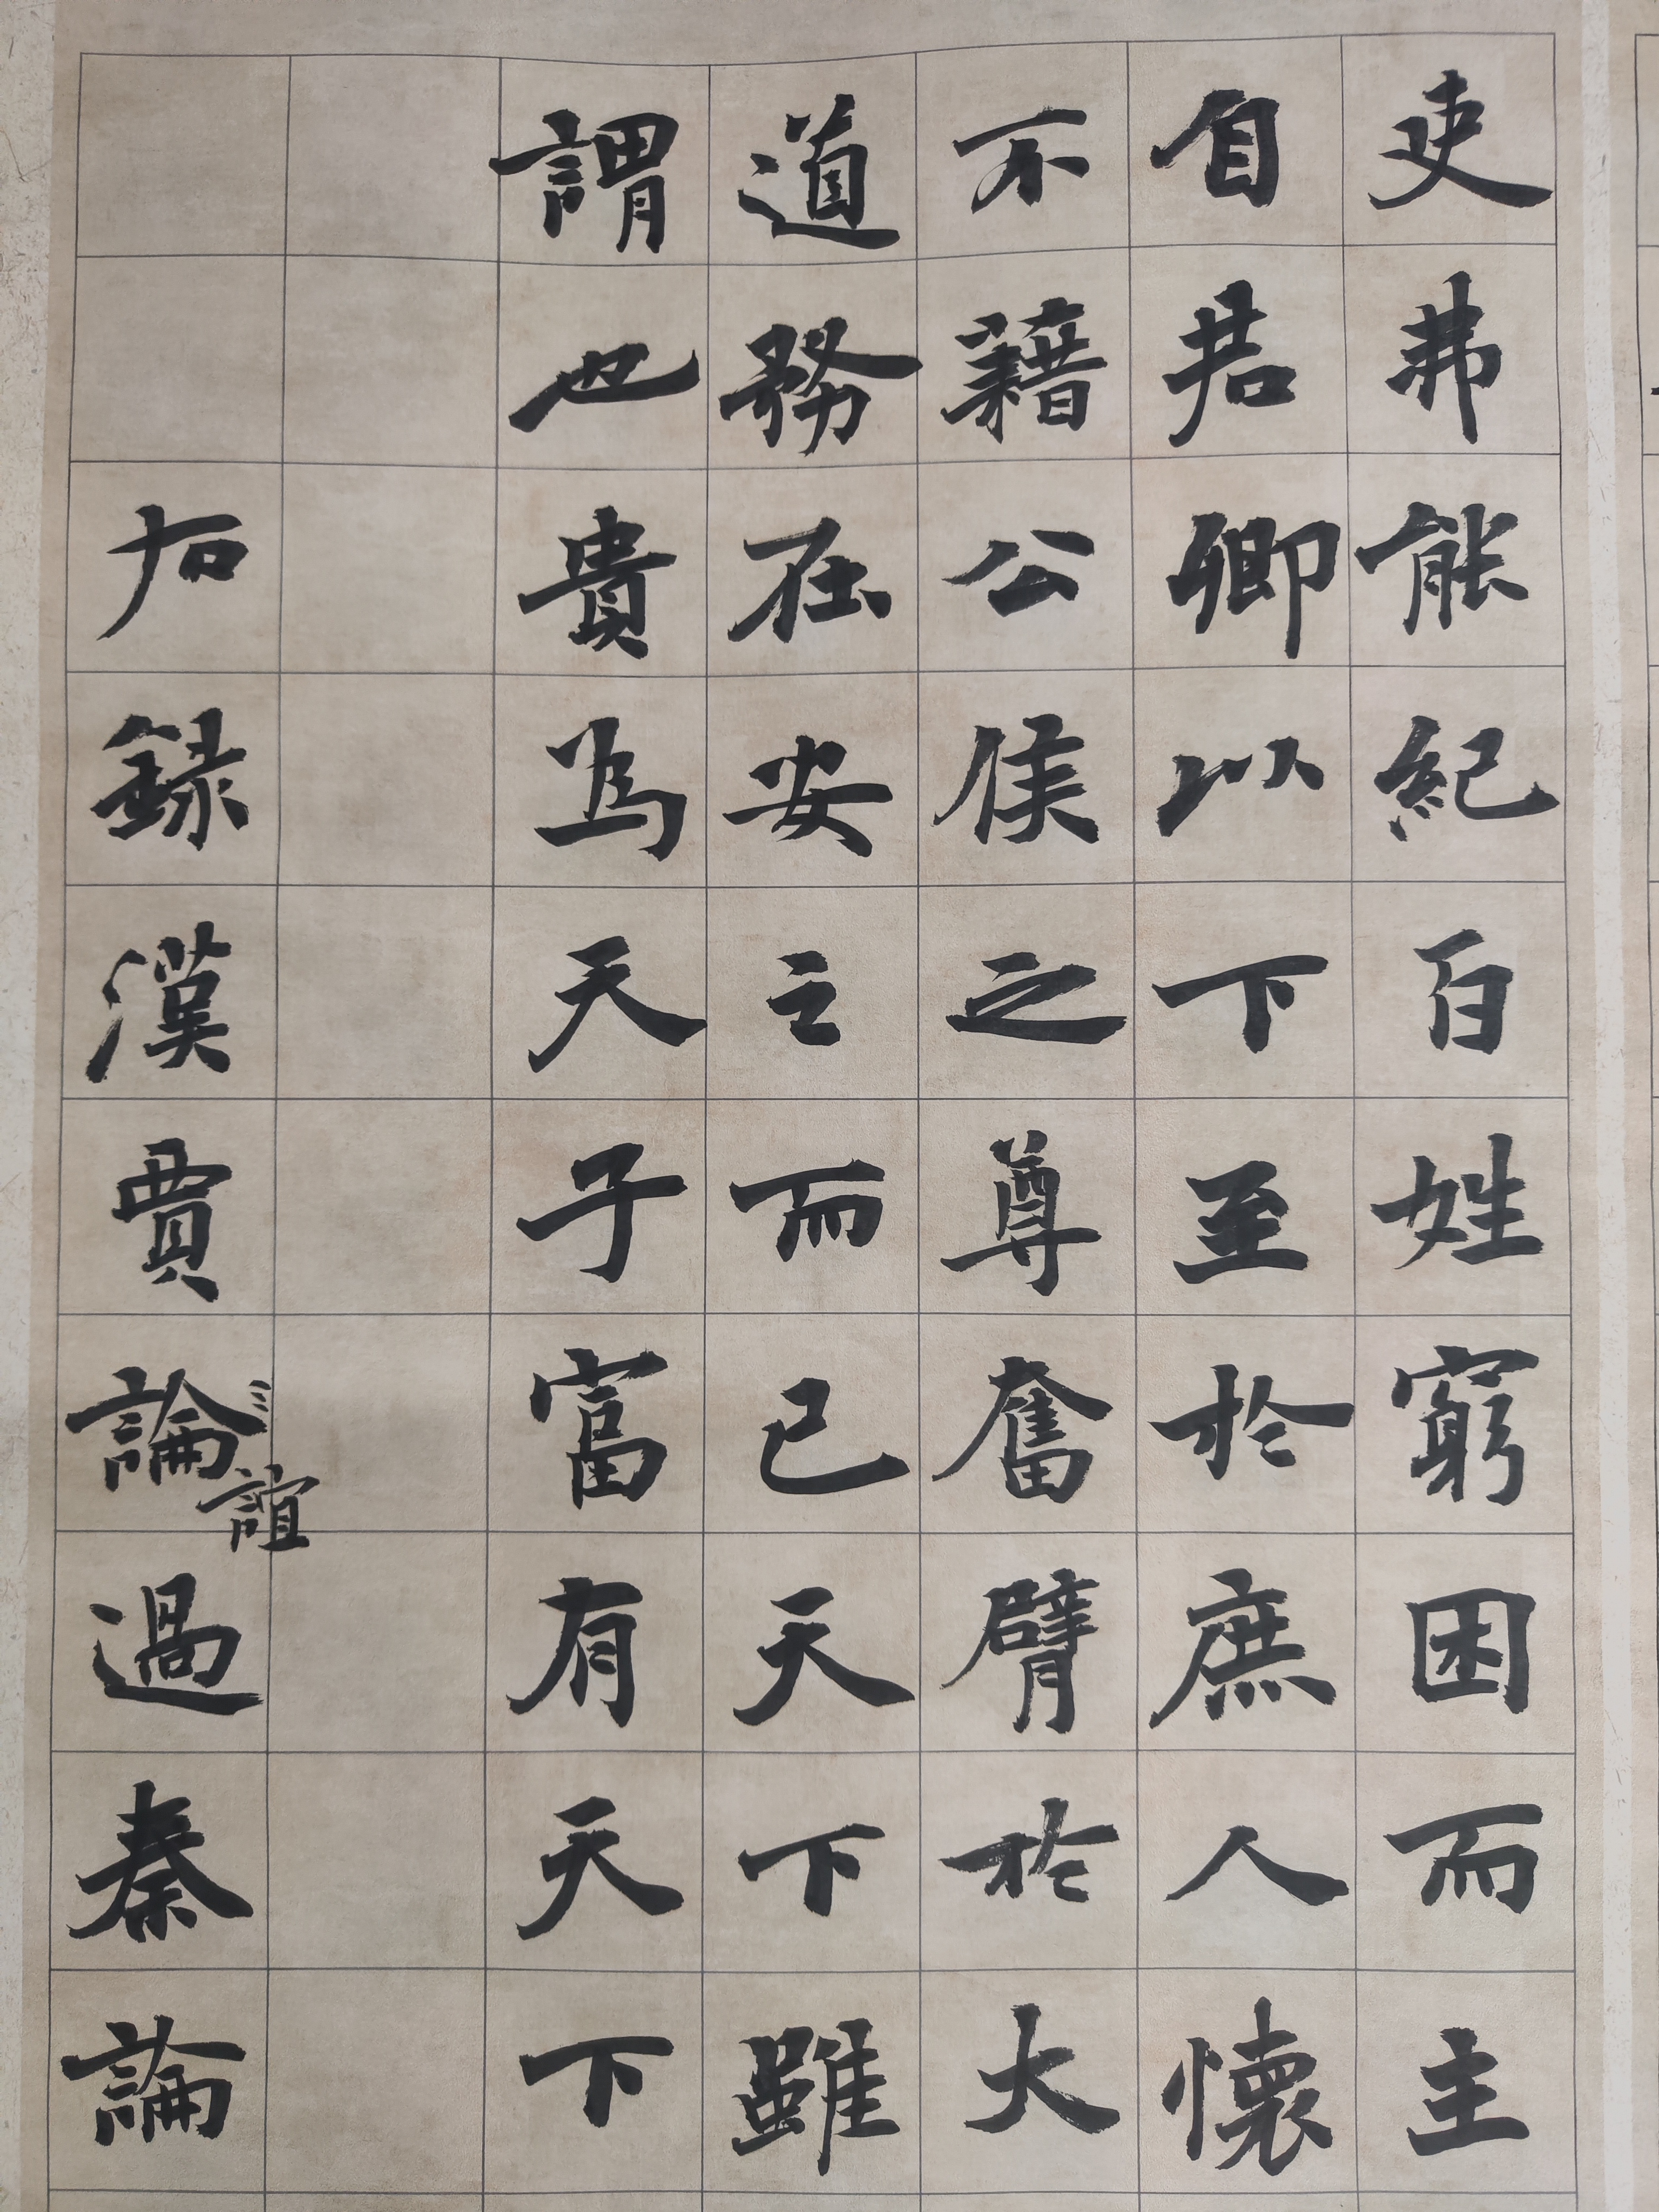 吏弗能紀百姓窮困而主
自君卿以下至於庶人懷
不藉公侯之尊奮臂於大
道務在安之而已天下雖
謂也貴為天子富有天下
右錄漢賈論誼過秦論